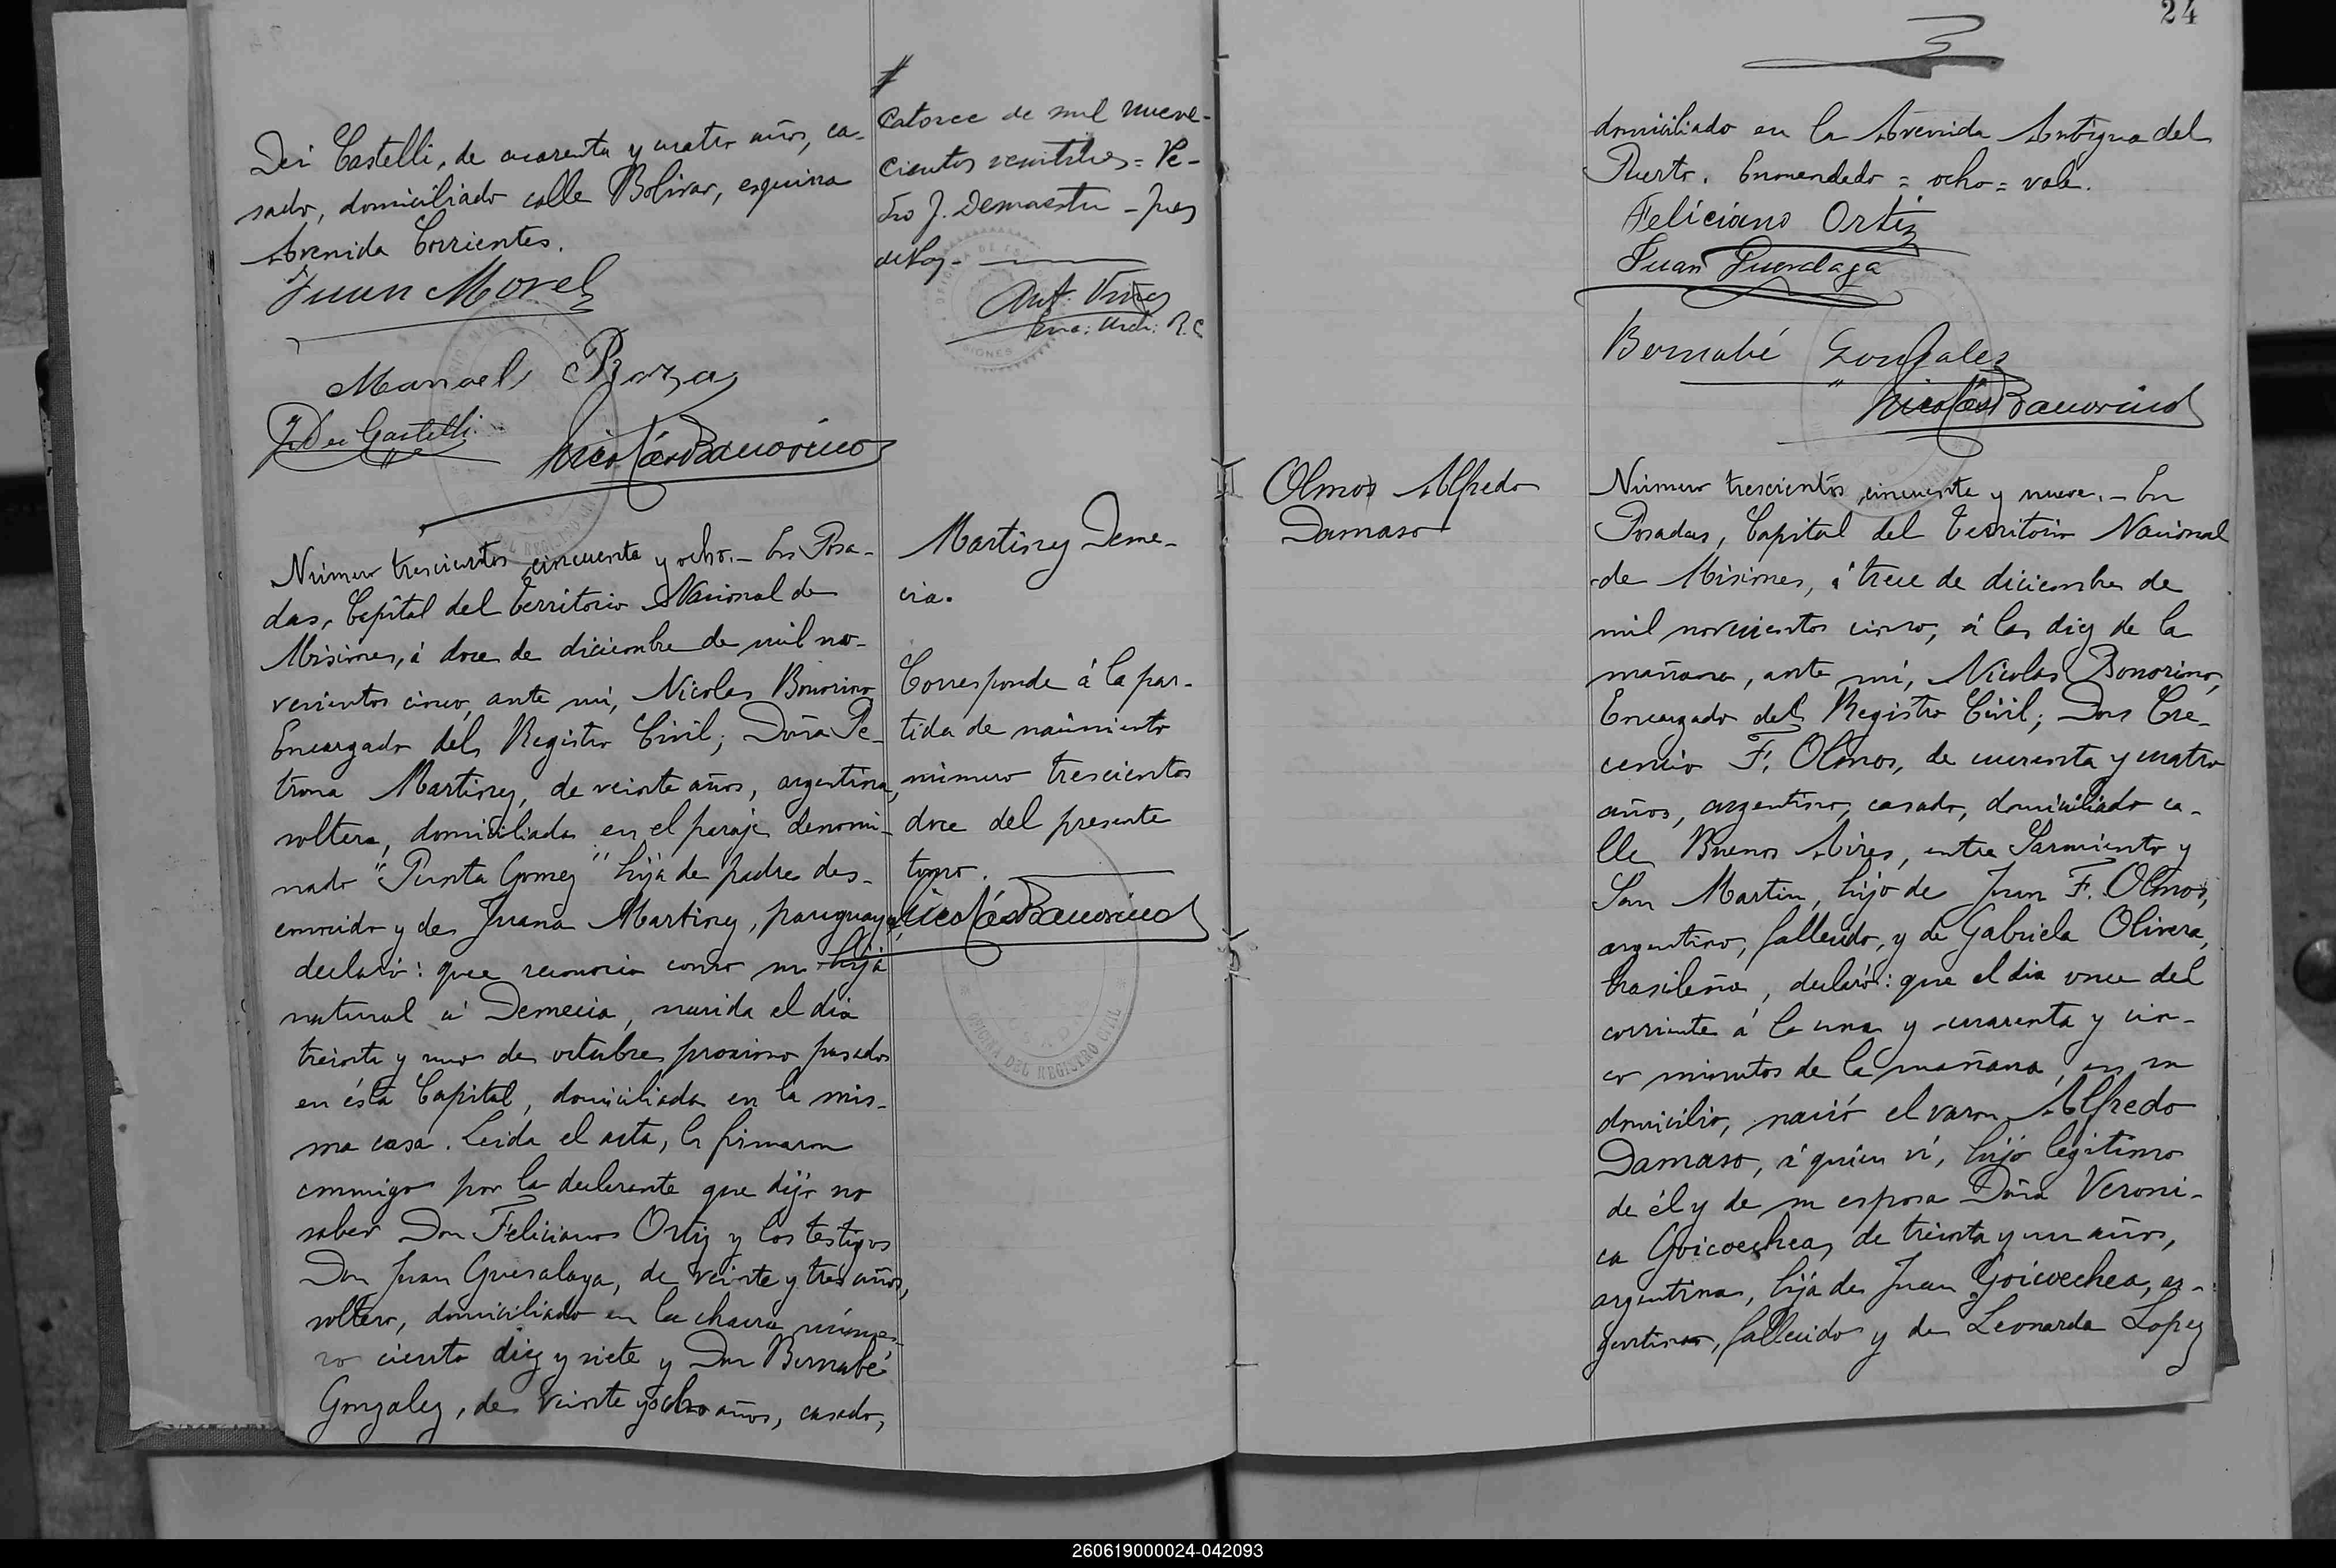 Dei Castelli, de cuarenta y cuatro años, ca-
sado, domiciliado calle Bolivar, esquina
Avenida Corrientes.
Juan Morel
Manuel
J. Dei Castelli
Nicolás Bonorino
Número trescientos cincuenta y ocho.- En Posa-
das, Capital del Territorio Nacional de
Misiones, á doce de diciembre de mil no-
vecientos cinco, ante mí, Nicolas Bonorino
Encargado del Registro Civil; Doña Pe-
trona Martinez, de veinte años, argentina,
soltera, domiciliada en el paraje denomi-
nado "Punta Gomez" hija de padre des-
conocido y de Juana Martinez, paraguaya,
declaró: que reconocia como su hija
natural á Demecia, nacida el dia
treinta y uno de octubre proximo pasado
en ésta Capital, domiciliada en la mis-
ma casa. Leida el acta, la firmaron
conmigo por la declarante que dijo no
saber Don Feliciano Ortiz y los testigos
Don Juan Guesalaga, de veinte y tres años,
soltero, domiciliado en la chacra núme-
ro ciento diez y siete y Don Bernabé
Gonzalez, de veinte y ocho años, casado,
#
catorce de mil nueve-
cientos veintitres = Pe-
dro J. Demaestri - Juez
de Paz -
Martinez Deme-
cia.
Corresponde á la par-
tida de nacimiento
número trescientos
doce del presente
tomo.
Nicolás Bonorino
OFICINA DEL REGISTRO CIVIL
24
domiciliado en la Avenida Antigua del
Puerto. Enmendado = ocho = vale.
Feliciano Ortiz
Juan Guesalaga
Bernabé Gonzalez
Nicolás Bonorino
Olmos Alfredo
Damaso
Número trescientos cincuenta y nueve.- En
Posadas, Capital del Territorio Nacional
de Misiones, á trece de diciembre de
mil novecientos cinco, á las diez de la
mañana, ante mí, Nicolas Bonorino,
Encargado del Registro Civil; Don Cre-
cencio F. Olmos, de cuarenta y cuatro
años, argentino, casado, domiciliado ca-
lle Buenos Aires, entre Sarmiento y
San Martin, hijo de Juan F. Olmos,
argentino, fallecido, y de Gabriela Olivera,
brasileña, declaró: que el dia once del
corriente á la una y cuarenta y cin-
co minutos de la mañana, en su
domicilio, nació el varon Alfredo
Damaso, á quien ví, hijo legitimo
de él y de su esposa Doña Veroni-
ca Goicoechea, de treinta y un años,
argentina, hija de Juan Goicoechea, ar-
gentino, fallecido y de Leonarda Lopez
260619000024-042093